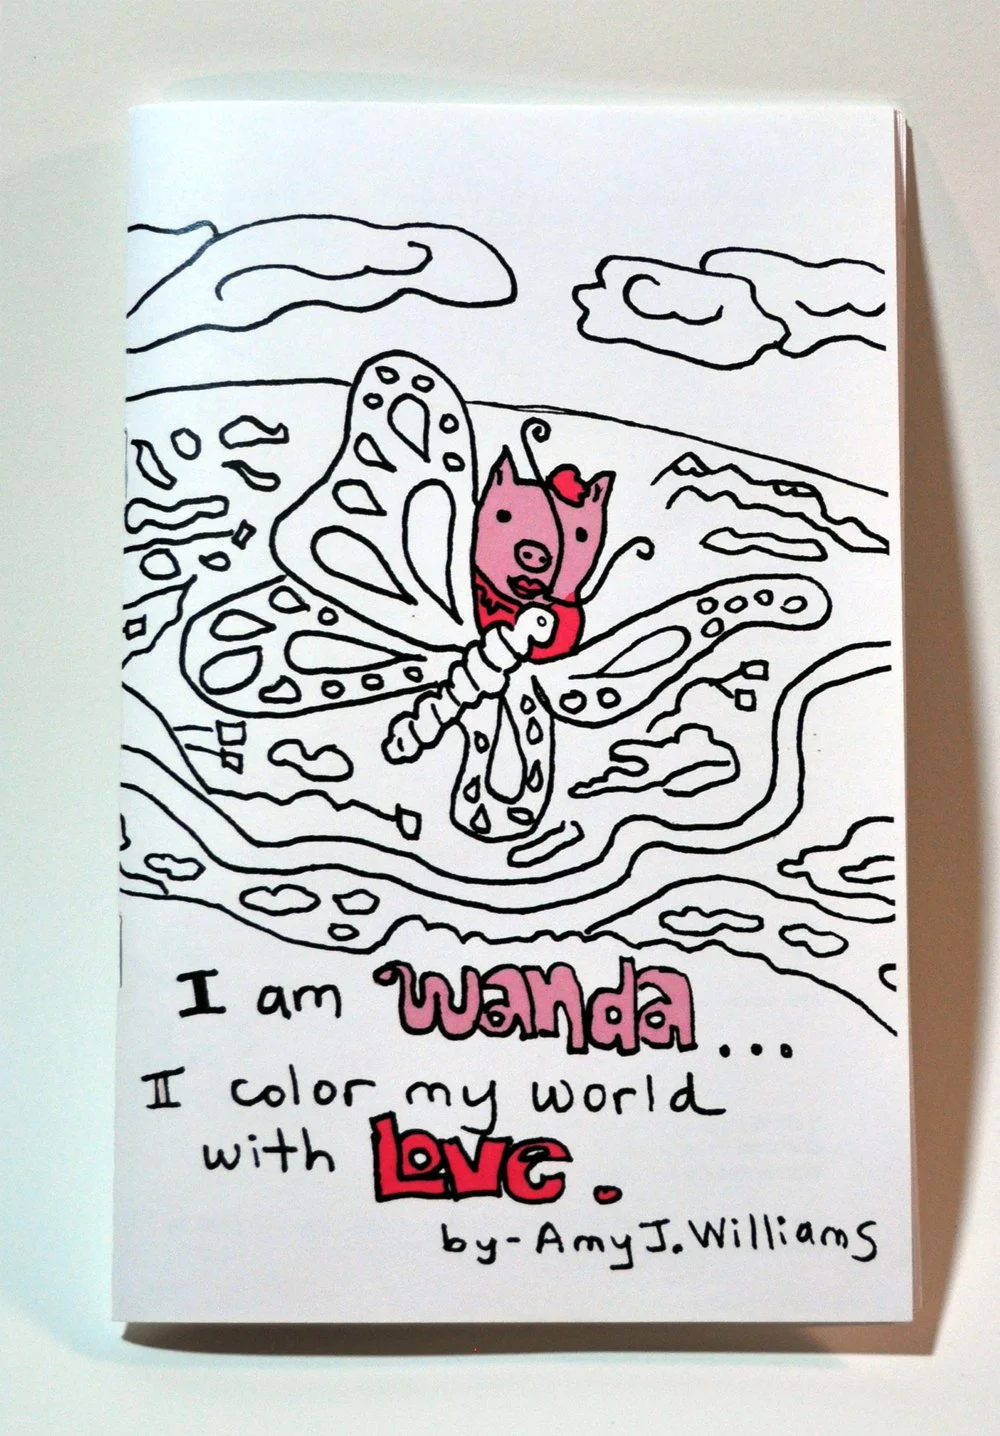 I am wanda...
I color my world
with Love.
by-Amy J. Williams